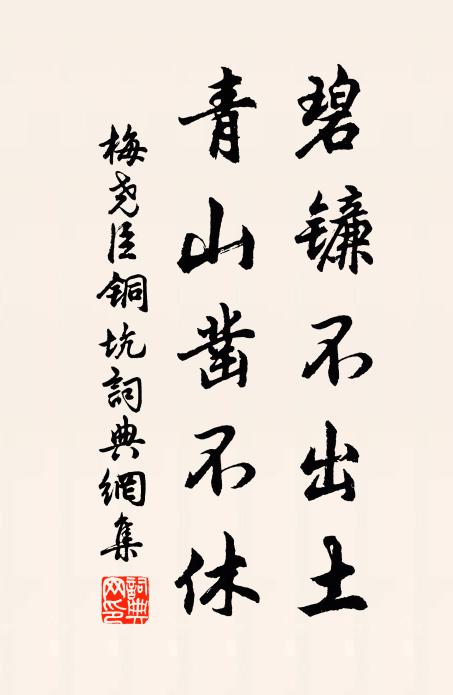 碧镰不出土
青山凿不休
梅尧臣銅坑詞典網集
詞典
网印